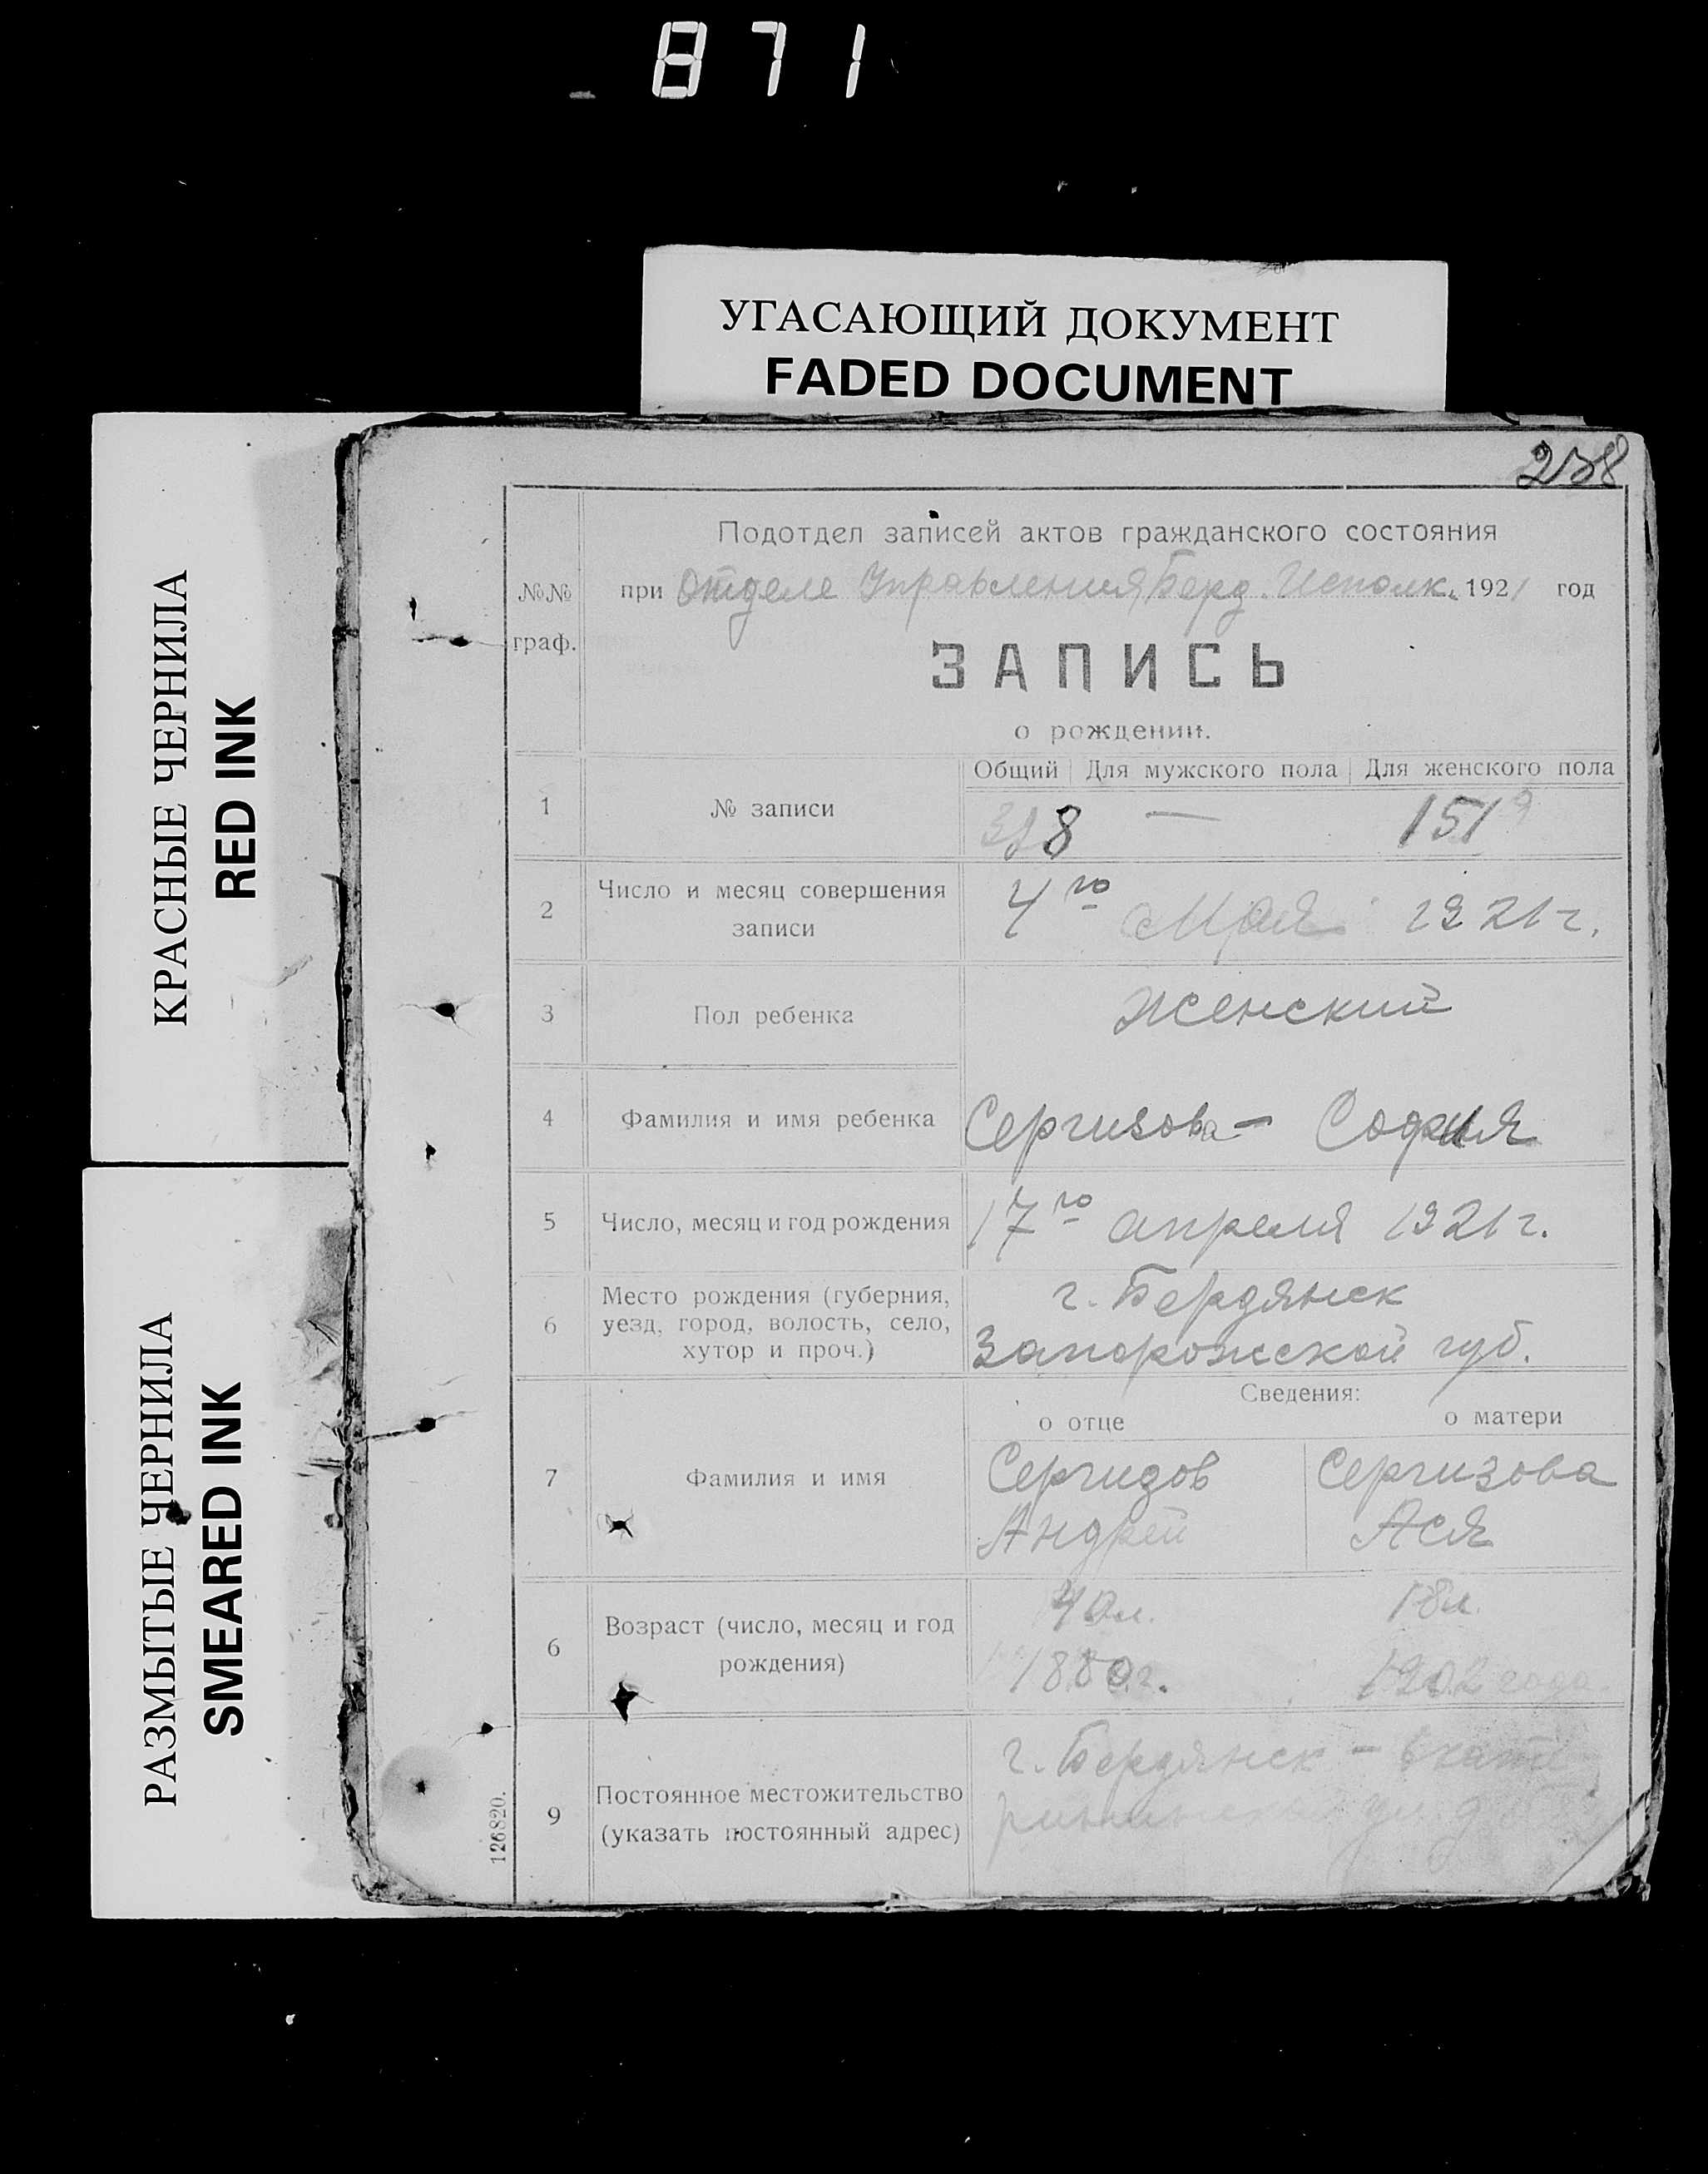 871
УГАСАЮЩИЙ ДОКУМЕНТ
FADED DOCUMENT
КРАСНЫЕ ЧЕРНИЛА
RED INK
РАЗМЫТЫЕ ЧЕРНИЛА
SMEARED INK
258
Подотдел записей актов гражданского состояния
№№ граф.
при Отделе Управления Берд. Исполк. 1921 год
ЗАПИСЬ
о рождении.
Общий Для мужского пола Для женского пола
1 № записи 8 — 151
2 Число и месяц совершения записи 4го Мая 1921 г.
3 Пол ребенка Женский
4 Фамилия и имя ребенка Сергизова - София
5 Число, месяц и год рождения 17го апреля 1921 г.
6 Место рождения (губерния, г. Бердянск
уезд, город, волость, село, Запорожской губ.
хутор и проч.)
Сведения:
о отце о матери
7 Фамилия и имя Сергизов Сергизова
Андрей Ася
6 Возраст (число, месяц и год 40 л. 18 л.
рождения) 1880 г. 1902 года
9 Постоянное местожительство г. Бердянск -
(указать постоянный адрес) ул.
126820.